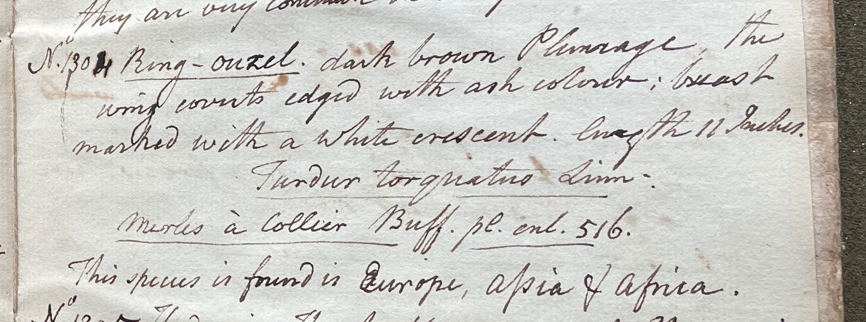 they are very common
No. 1304 Ring-ouzel. dark brown Plumage, the
wing coverts edged with ash colour; breast
marked with a white crescent. length 11 Inches.
Turdur torquatus Linn-.
Merles à Collier Buff. pl. enl. 516.
This species is found is Europe, Asia & Africa.
No